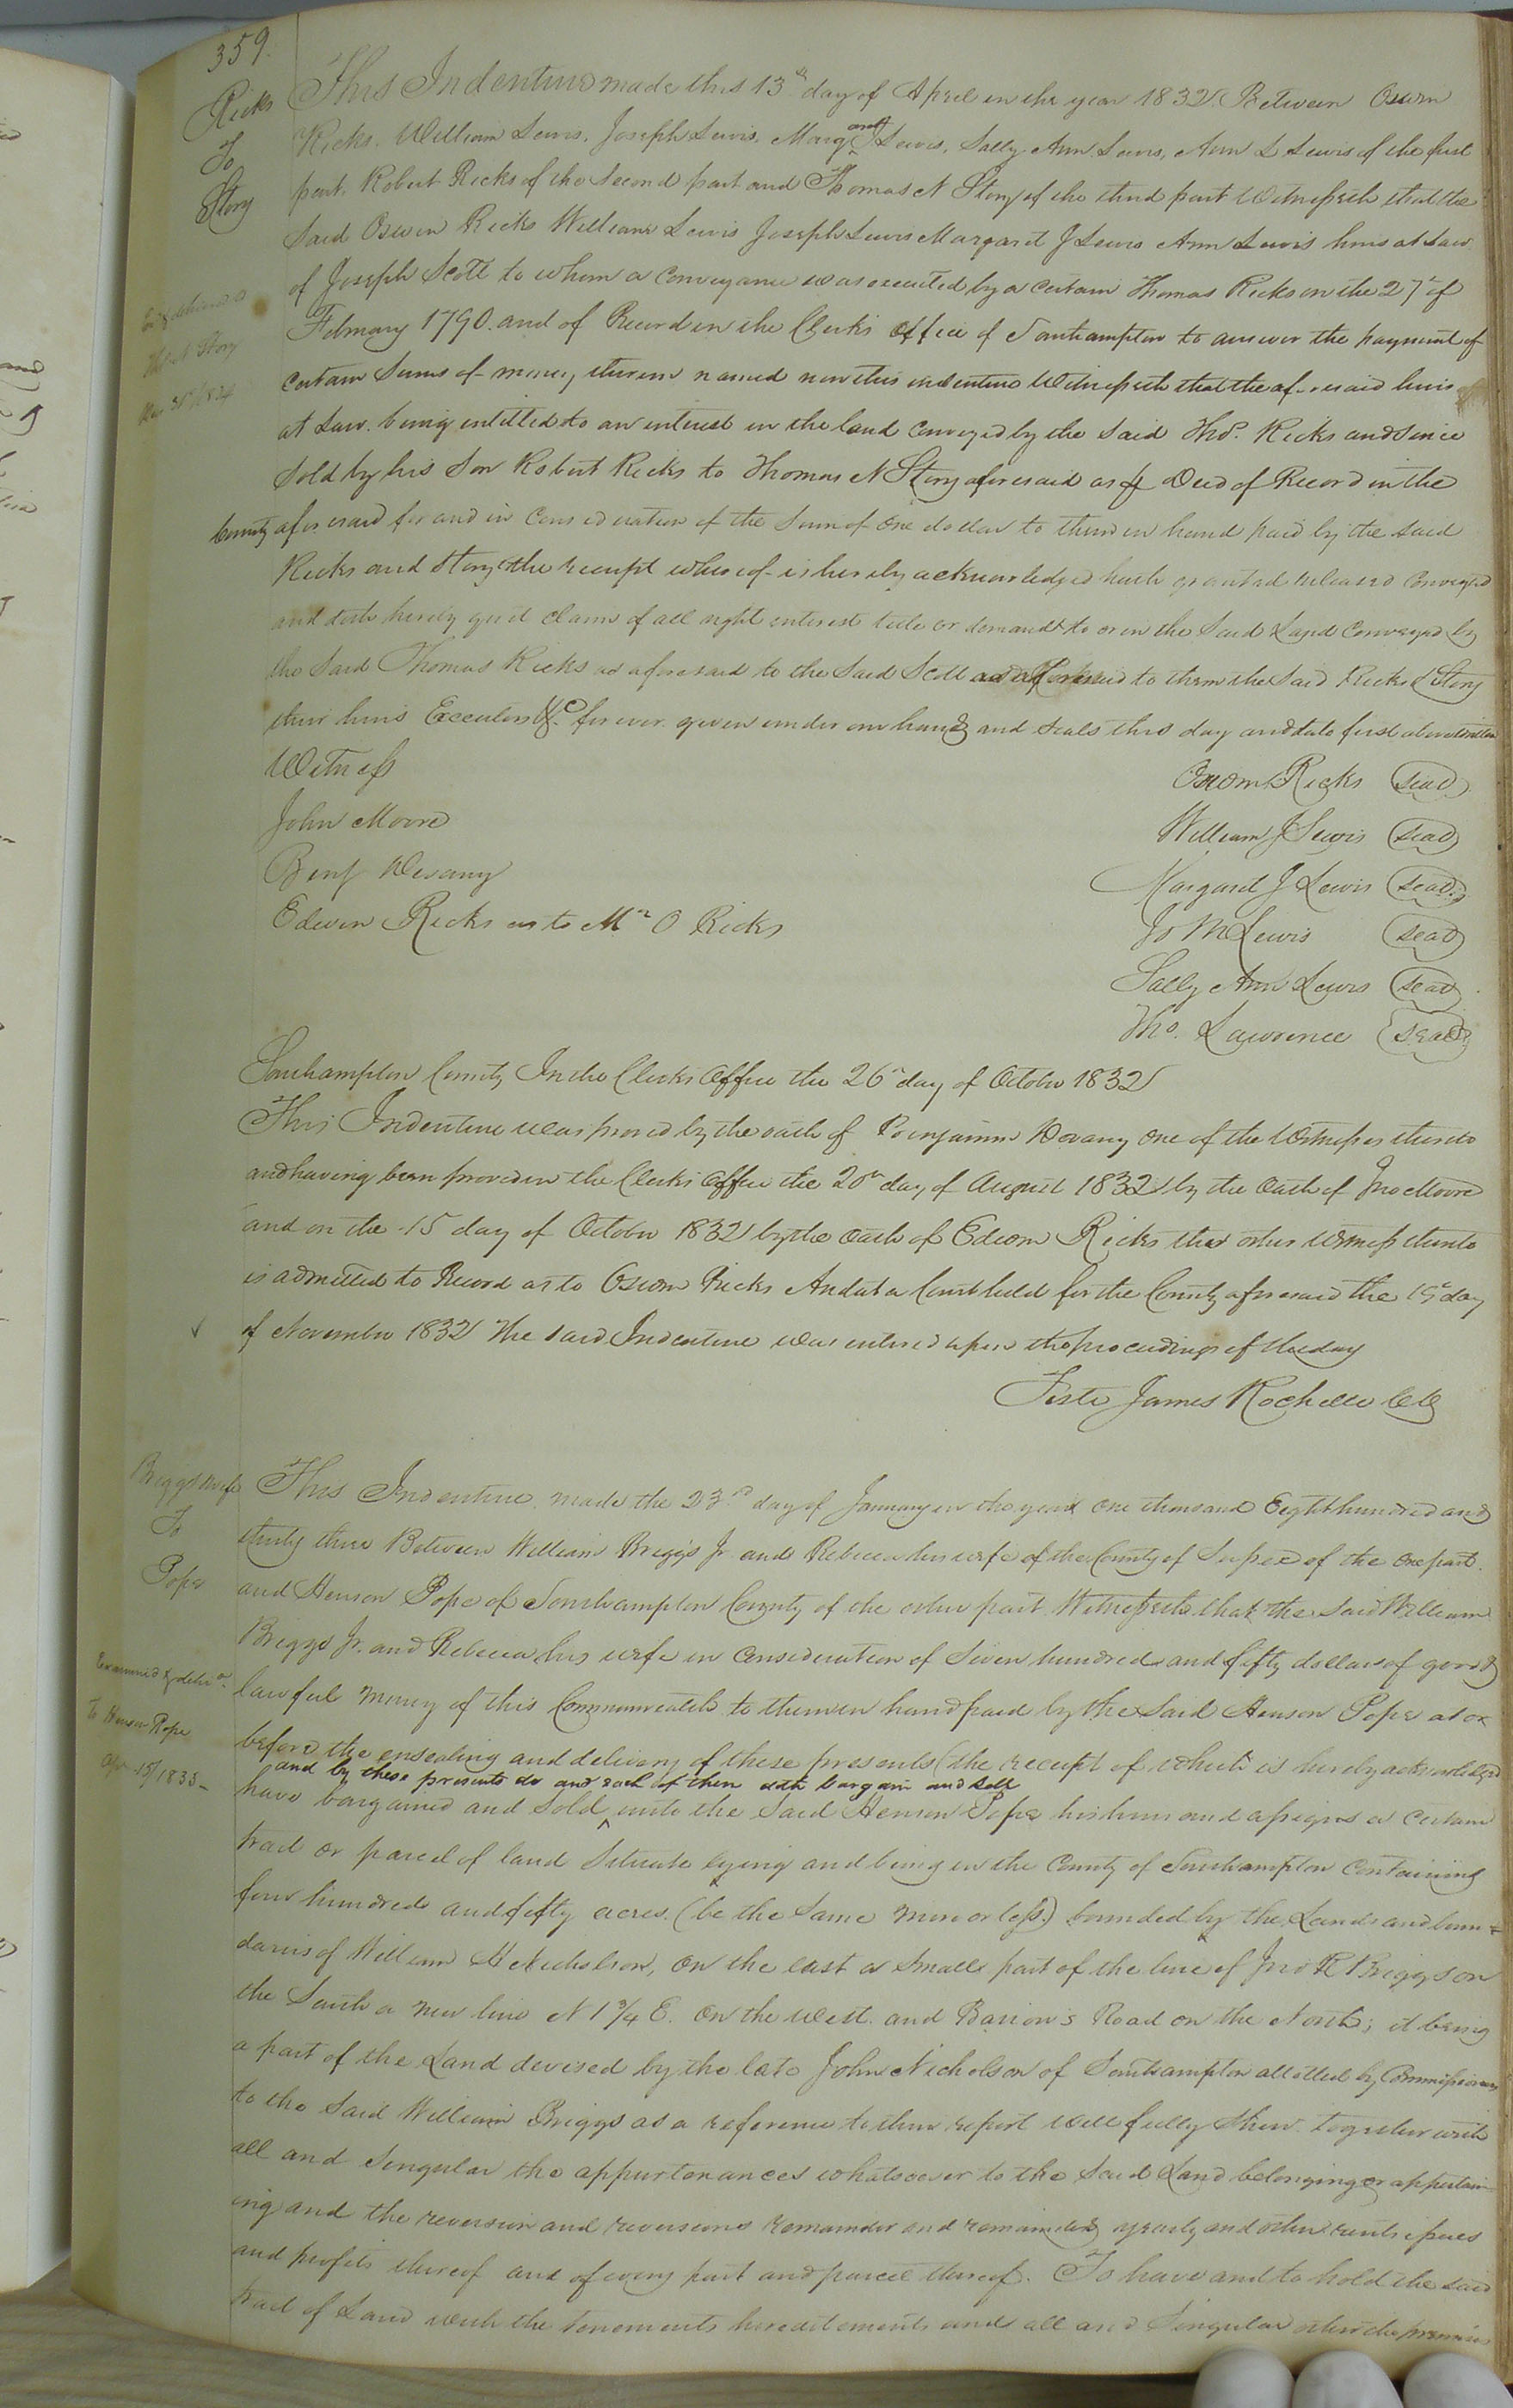 359.
Ricks
To
Story
This Indenture made this 13th day of April in the year 1832 Between Oswin
Ricks, William Lewis, Joseph Lewis, Margaret J Lewis, Sally Ann Lewis, Ann L Lewis of the first
part, Robert Ricks of the Second part and Thomas N Story of the third part Witnesseth that the
Said Oswin Ricks William Lewis Joseph Lewis Margaret J Lewis Ann Lewis heirs at Law
of Joseph Scott to whom a conveyance was executed by a certain Thomas Ricks on the 27th of
February 1790. and of Record in the Clerks office of Southampton to answer the payment of
Certain Sums of money therein named now this indenture Witnesseth that the aforesaid heirs
at Law. being intitled to an interest in the land conveyed by the said Thos. Ricks and Since
Sold by his Son Robert Ricks to Thomas N Story aforesaid as Deed of Record in the
County aforesaid for and in Consideration of the Sum of one dollar to them in hand paid by the said
Ricks and Story the receipt whereof is hereby acknowledged hath granted released Conveyed
and doth hereby quit claim of all right interest title or demand to or in the Said Land Conveyed by
the Said Thomas Ricks as aforesaid to the Said Scott as aforesaid to them the Said Ricks & Story
their heirs Executors &c. forever given under our hands and seals this day and date first above written
Witness
John Moore
Benj Devany
Edwin Ricks as to Mr O Ricks
Oswin Ricks Seal
William J Lewis Seal
Margaret J Lewis Seal
Jo M Lewis Seal
Sally Ann Lewis Seal
Tho. Lawrence Seal
Southampton County In the Clerks Office the 26th day of October 1832
This Indenture was proved by the oath of Benjamin Devany one of the Witnesses thereto
and having been proved in the Clerks Office the 20th day of August 1832 by the Oath of Jno Moore
and on the 15 day of October 1832 by the oath of Edwin Ricks the other witness thereto
is admitted to Record as to Oswin Ricks And at a Court held for the County aforesaid the 19th day
of November 1832 The said Indenture was entered upon the proceedings of the day
Teste James Rochelle CC
Briggs & wife
To
Pope
Examined & deliv'd
To Henson Pope
Apr 15/1835
This Indenture made the 23rd day of January in the year one thousand Eight hundred and
thirty three Between William Briggs Jr. and Rebecca his wife of the County of Sussex of the one part
and Henson Pope of Southampton County of the other part Witnesseth that the Said William
Briggs Jr. and Rebecca his wife in Consideration of Seven hundred and fifty dollars of good &
lawful money of this Commonwealth to them in hand paid by the Said Henson Pope at or
before the ensealing and delivery of these presents (the receipt of which is hereby acknowledged
and by these presents do and each of them doth bargain and sell
have bargained and Sold ^ unto the Said Henson Pope his heirs and assigns a Certain
tract or parcel of land Situate lying and being in the County of Southampton Containing
four hundred and fifty acres. (be the Same more or less.) bounded by the Lands and boun=
daries of William H Nicholson, on the east a Small part of the line of Jno R Briggs on
the South a new line N 1 3/4 E. on the West. and Barion's Road on the North; it being
a part of the Land devised by the late John Nicholson of Southampton allotted by Commissioners
to the Said William Briggs as a reference to their report will fully Shew. together with
all and Singular the appurtenances whatsoever to the Said Land belonging or appertain-
ing and the reversion and reversions remainder and remainders yearly and other rents issues
and profits thereof and of every part and parcel thereof. To have and to hold the said
tract of Land with the tenements hereditaments and all and Singular other the premises